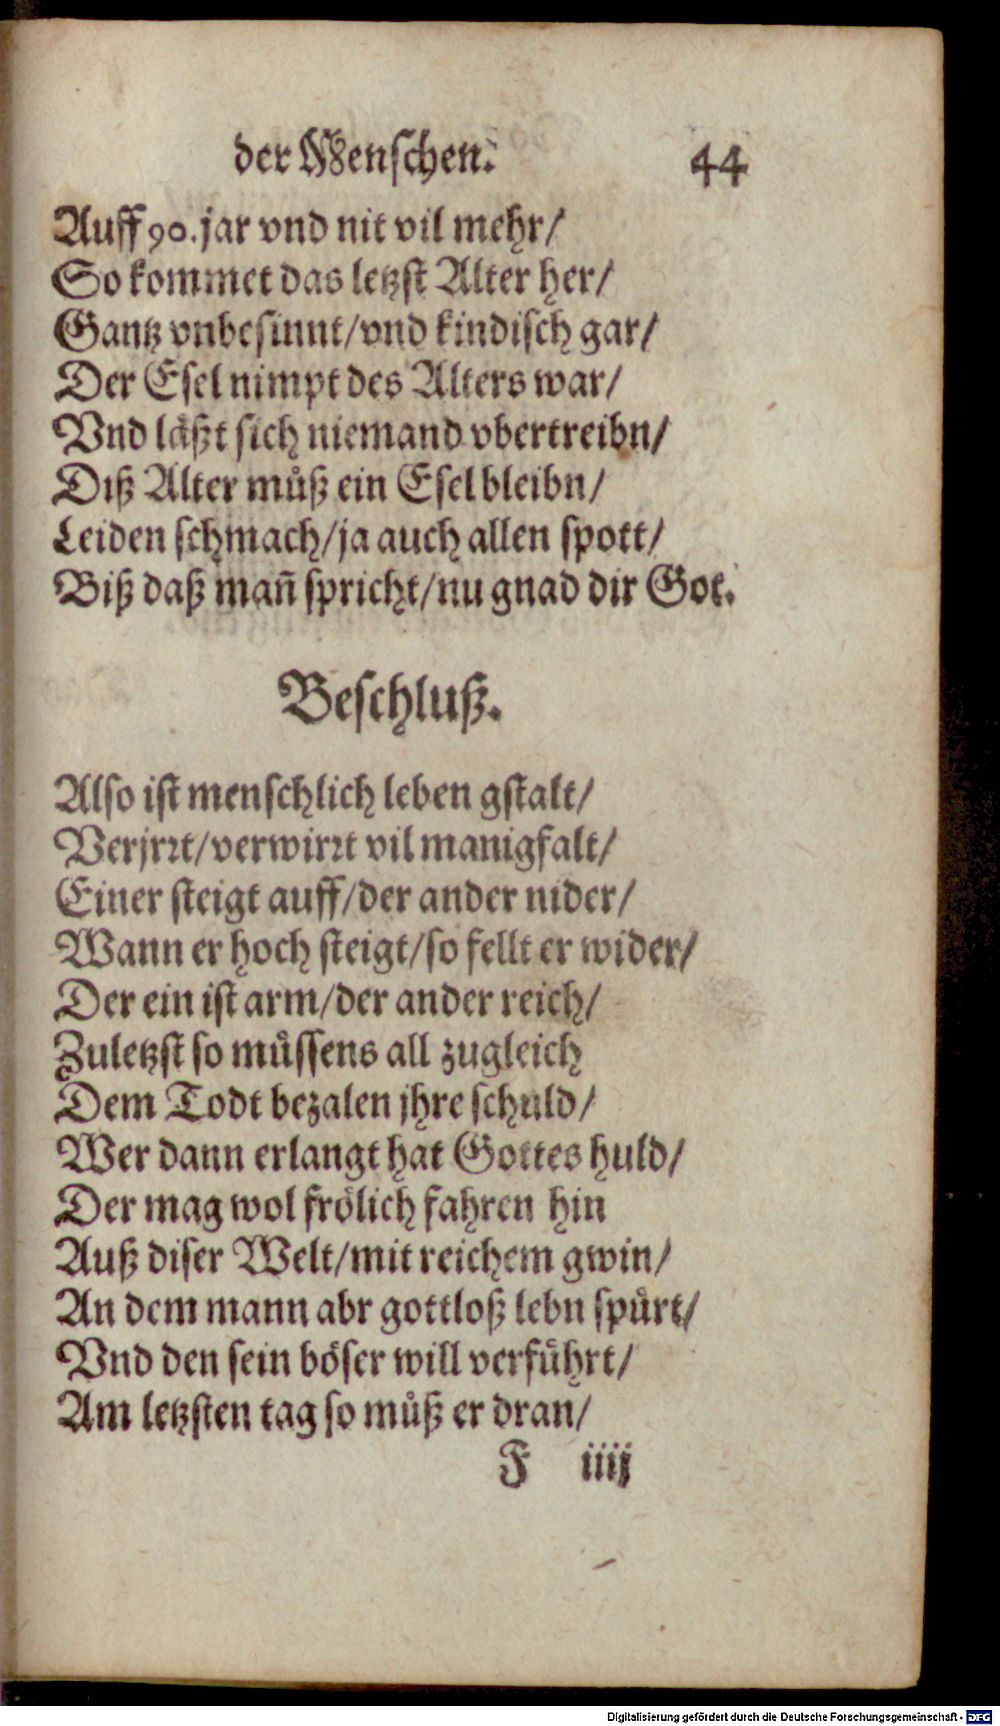 der Menschen. 44
Auff 90. jar vnd nit vil mehr/
So kommet das letzst Alter her/
Gantz vnbesinnt/vnd kindisch gar/
Der Esel nimpt des Alters war/
Vnd läßt sich niemand vbertreibn/
Diß Alter muͦß ein Esel bleibn/
Leiden schmach/ja auch allen spott/
Biß daß mañ spricht/nu gnad dir Got.
Beschluß.
Also ist menschlich leben gstalt/
Verjrꝛt/verwirꝛt vil manigfalt/
Einer steigt auff/der ander nider/
Wann er hoch steigt/so fellt er wider/
Der ein ist arm/der ander reich/
Zuletzst so muͤssens all zugleich
Dem Todt bezalen jhre schuld/
Wer dann erlangt hat Gottes huld/
Der mag wol froͤlich fahren hin
Auß diser Welt/mit reichem gwin/
An dem mann abr gottloß lebn spuͤrt/
Vnd den sein boͤser will verfuͤhrt/
Am letzsten tag so muͦß er dran/
F iiij
Digitalisierung gefördert durch die Deutsche Forschungsgemeinschaft - DFG